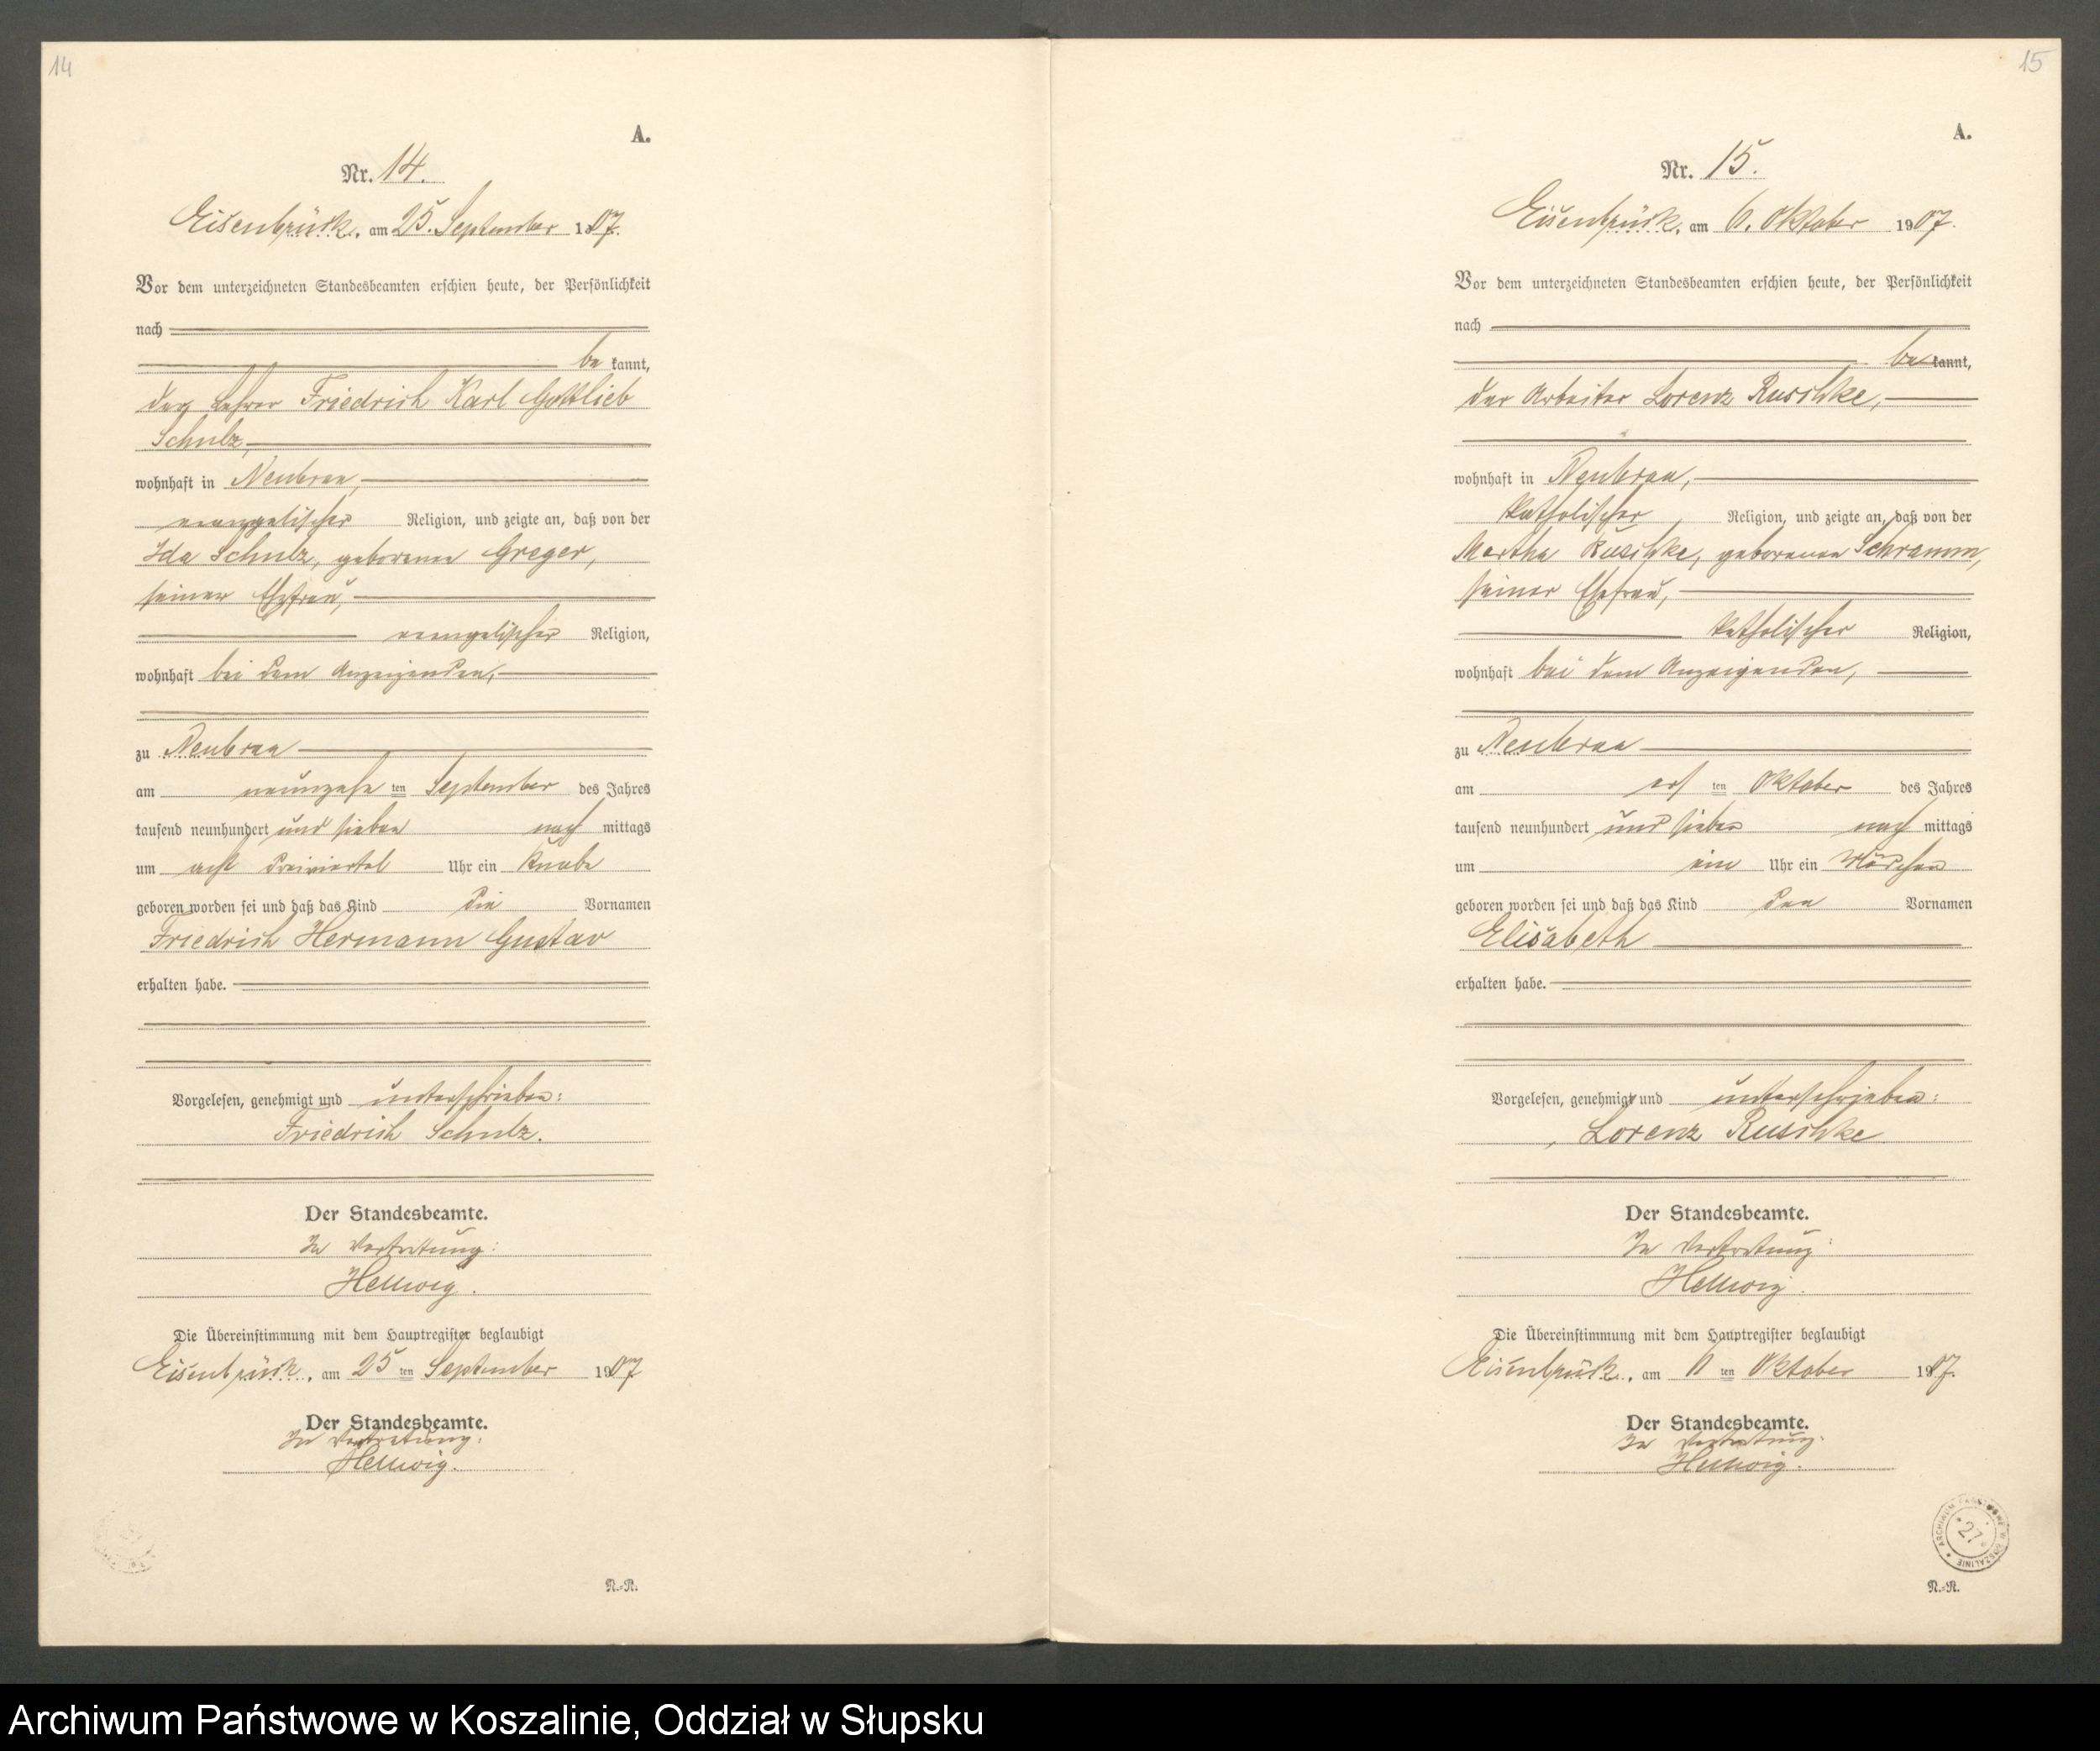 14
A.
Nr. 14.
Eisenbrück, am 25. September 1907.
Vor dem unterzeichneten Standesbeamten erschien heute, der Persönlichkeit
nach
be kannt,
der Lehrer Friedrich Karl Gottlieb
Schulz,
wohnhaft in Neubraa,
evangelischer Religion, und zeigte an, daß von der
Ida Schulz, geborenen Greger,
seiner Ehefrau,
evangelischer Religion,
wohnhaft bei dem Anzeigenden,
zu Neubraa
am neunzehn ten September des Jahres
tausend neunhundert und sieben nach mittags
um acht dreiviertel Uhr ein Knabe
geboren worden sei und daß das Kind die Vornamen
Friedrich Hermann Gustav
erhalten habe.
Vorgelesen, genehmigt und unterschrieben:
Friedrich Schulz.
Der Standesbeamte.
In Vertretung:
Hellwig.
Die Übereinstimmung mit dem Hauptregister beglaubigt
Eisenbrück, am 25 ten September 1907
Der Standesbeamte.
In Vertretung:
Hellwig.
R.-R.
15
A.
Nr. 15.
Eisenbrück, am 6. Oktober 1907.
Vor dem unterzeichneten Standesbeamten erschien heute, der Persönlichkeit
nach
be kannt,
der Arbeiter Lorenz Ruschke,
wohnhaft in Neubraa,
katholischer Religion, und zeigte an, daß von der
Martha Ruschke, geborenen Schramm,
seiner Ehefrau,
katholischer Religion,
wohnhaft bei dem Anzeigenden,
zu Neubraa
am ers ten Oktober des Jahres
tausend neunhundert und sieben nach mittags
um ein Uhr ein Mädchen
geboren worden sei und daß das Kind den Vornamen
Elisabeth
erhalten habe.
Vorgelesen, genehmigt und unterschrieben:
Lorenz Ruschke
Der Standesbeamte.
In Vertretung:
Hellwig.
Die Übereinstimmung mit dem Hauptregister beglaubigt
Eisenbrück, am 6 ten Oktober 1907.
Der Standesbeamte.
In Vertretung:
Hellwig.
ARCHIWUM PAŃSTWOWE W KOSZALINIE
27
R.-R.
Archiwum Państwowe w Koszalinie, Oddział w Słupsku